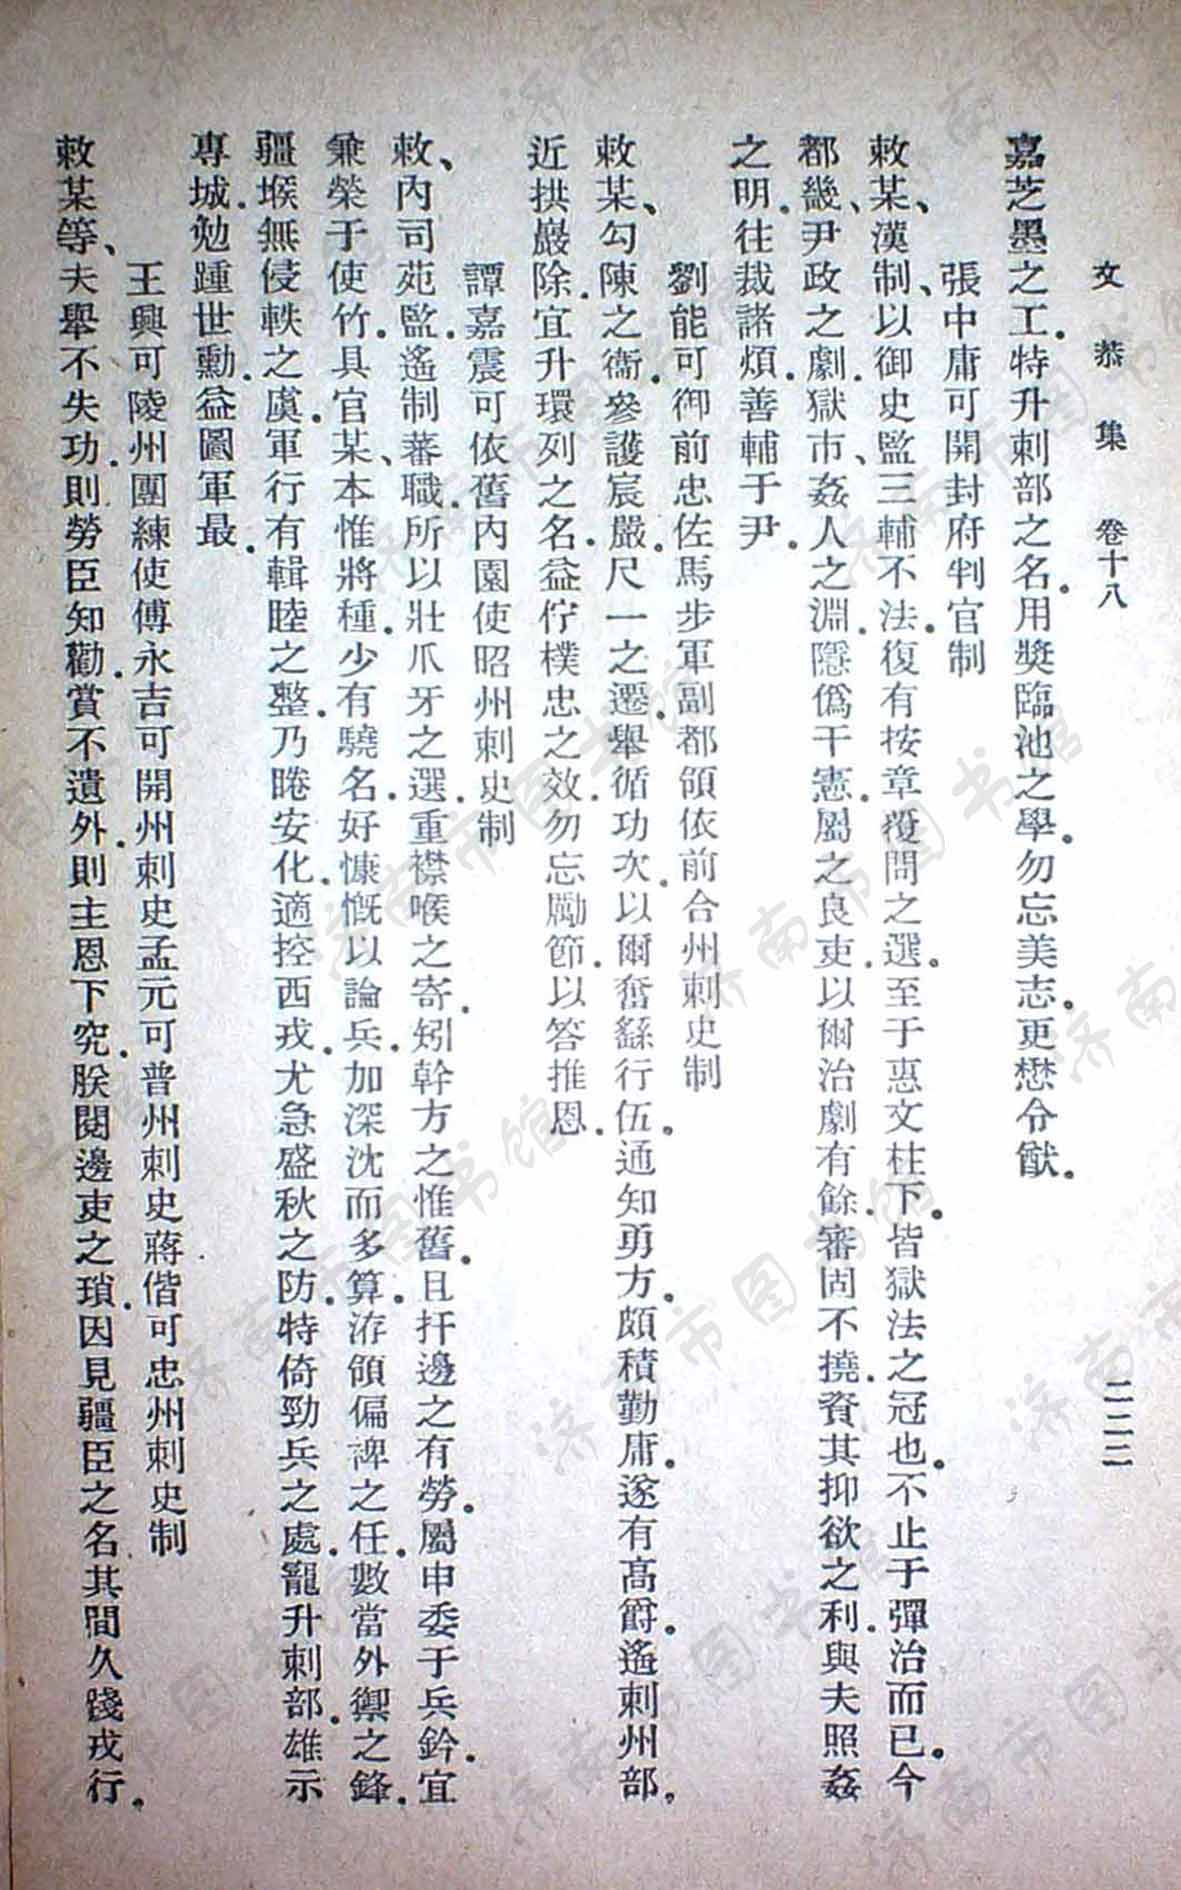 文恭集 卷十八 二二二
嘉芝墨之工.特升刺部之名.用獎臨池之學.勿忘美志.更懋令猷.
張中庸可開封府判官制
敕某、漢制、以御史監三輔不法.復有按章覆問之選.至于惠文柱下.皆獄法之冠也.不止于彈治而已.今
都畿、尹政之劇.獄市、姦人之淵.隱僞干憲.屬之良吏.以爾治劇有餘.審固不撓.資其抑欲之利.與夫照姦
之明.往裁諸煩.善輔于尹.
劉能可御前忠佐馬步軍副都領依前合州刺史制
敕某、勾陳之衞.參護宸嚴.尺一之遷.舉循功次.以爾奮繇行伍.通知勇方.頗積勤庸.遂有高爵.遙刺州部.
近拱巖除.宜升環列之名.益佇樸忠之效.勿忘勵節.以答推恩.
譚嘉震可依舊內園使昭州刺史制
敕、內司苑監.遙制蕃職.所以壯爪牙之選.重襟喉之寄.矧幹方之惟舊.且扞邊之有勞.屬申委于兵鈐.宜
兼榮于使竹.具官某、本惟將種.少有驍名.好慷慨以論兵.加深沈而多算.洊領偏裨之任.數當外禦之鋒.
疆堠無侵軼之虞.軍行有輯睦之整.乃睠安化.適控西戎.尤急盛秋之防.特倚勁兵之處.寵升刺部.雄示
專城.勉踵世勳.益圖軍最.
王興可陵州團練使傅永吉可開州刺史孟元可普州刺史蔣偕可忠州刺史制
敕某等、夫舉不失功.則勞臣知勸.賞不遺外.則主恩下究.朕閱邊吏之瑣.因見疆臣之名.其間久踐戎行.